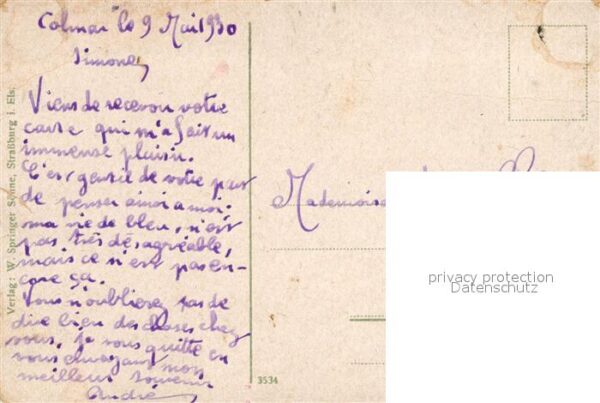 Colmar le 9 Mai 1930
Simone,
Viens de recevoir votre
carte qui m'a fait un
immense plaisir.
C'est gentil de votre part
de penser ainsi a moi.
ma vie de bleu, n'est
pas très désagréable,
mais ce n'est pas en-
core ça.
Vous n'oublierez pas de
dire bien des choses chez
vous. Je vous quitte en
vous envoyant mon
meilleur souvenir
André
Verlag: W. Springer Söhne, Straßburg i. Els.
Mademoise
privacy protection
Datenschutz
3534